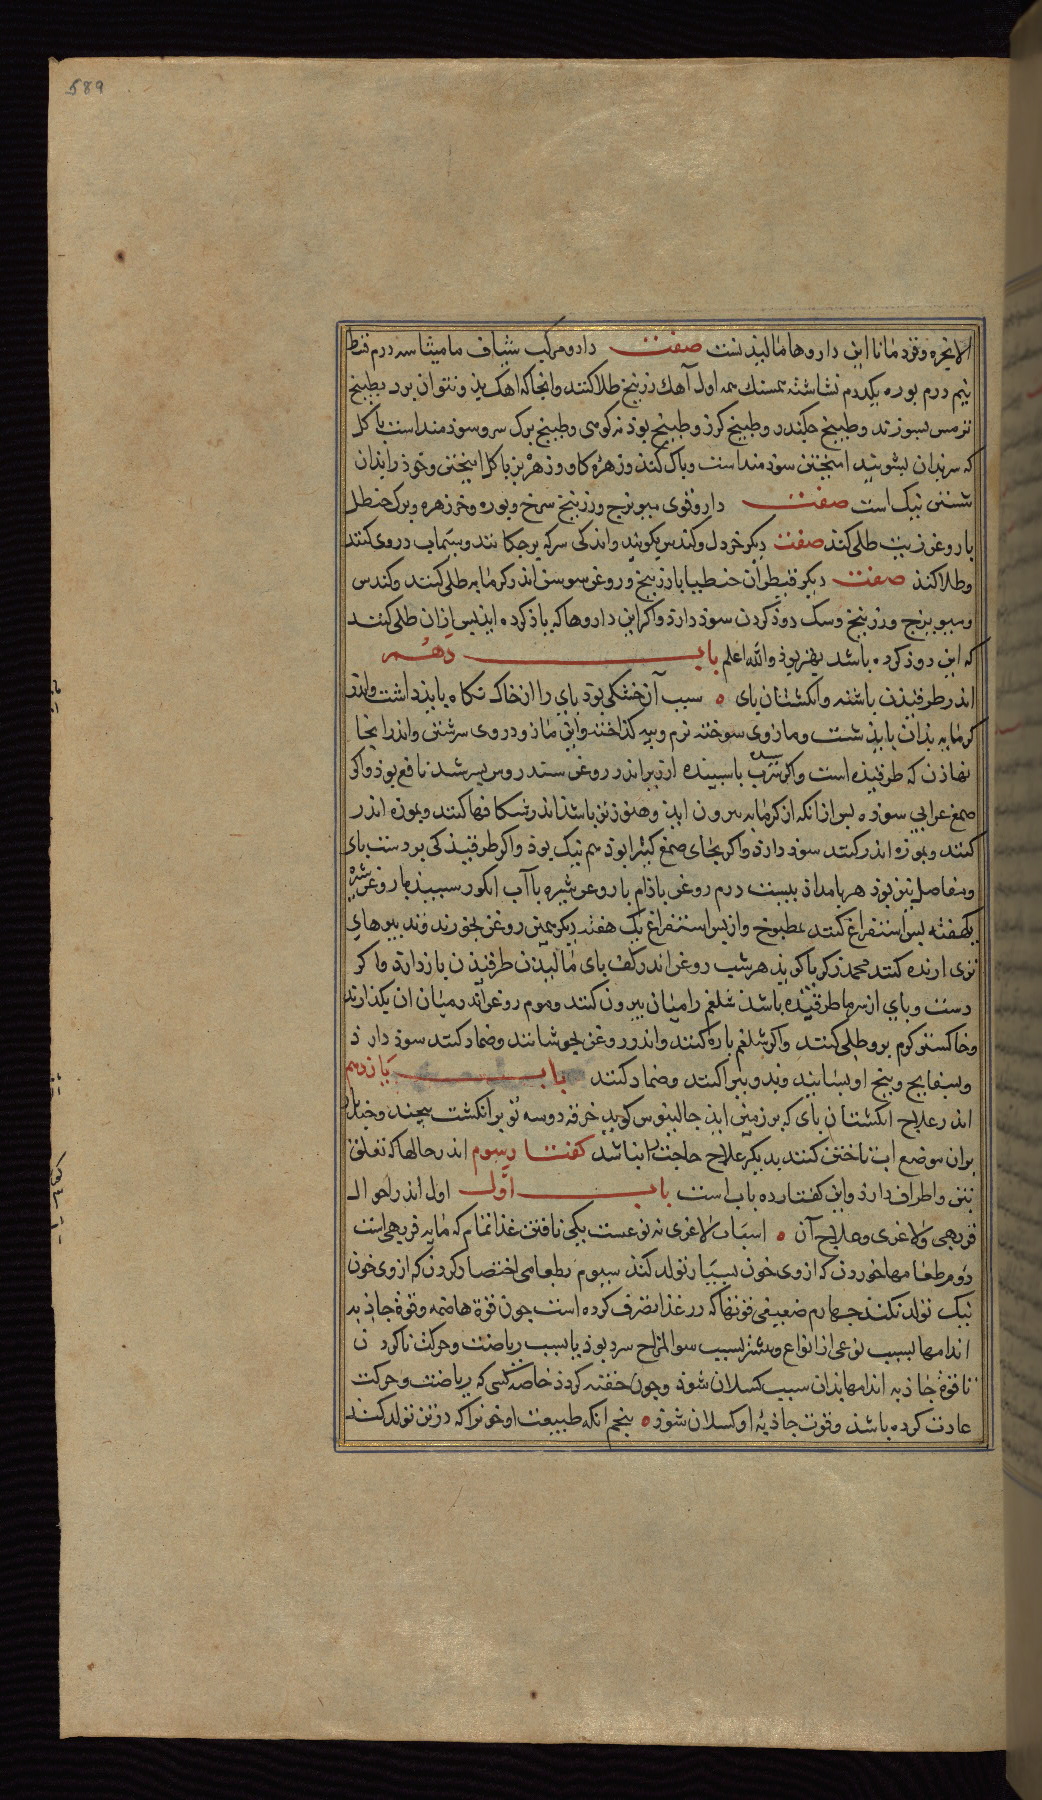 589
الانجره وقردمانا این داروها مالیذنست صفت داروء مرکب شیاف مامیثا سه درم قسط
نیم درم بوره یکدرم نشاشته همسنك همه اول آهك زرنیخ طلا کنند وانجا که اهک بذ ونتوان برد بطبیخ
ترمس بسوزند وطبیخ چکندر وطبیخ کرنب وطبیخ بوذنه کوهی وطبیخ برک سرو سوذمنداست با کل
که سر بذان بشویند امیختن سوذمنداست وپاک کند وزهره کاو وزهره بز با کل امیختن وخوذ را بذان
شستن نیک است صفت داروقوی میویزج وزرنیخ سرخ وبوره وخرزهره وبرک حنظل
با روغن زیت طلی کند صفت دیکر خردل وکندس بکوبند واندکی سرکه برچکانند وسیماب دروی کشند
وطلا کند صفت دیکر قطران جنطیانا با زرنیخ وروغن سوسن اندر کرمابه طلی کنند وکندس
ومیویزج وزرنیخ وسک دوذ کردن سوذ دارد واکر این داروها که یاذ کرده اید پس ازان طلی کنند
که این دوذ کرده باشد بهتر بوذ والله اعلم باب دهم
اندر طرقیذن پاشنه وانکشتان پای ه سبب آن خشکی بوذ پای را از خاک نکاه بایذ داشت واندر
کرمابه بذان بایذ شست ومازوی سوخته نرم وپیه کذاخته واین مازو دروی سرشتن واندر انجا
نهاذن که طرقیذه است واکر سرب با سپیده ارزیز اندر روغن سندروس بسرشند نافع بوذ واکر
صمغ عرابی سوذه پس ازانکه از کرمابه بیرون اید وهنوز تر باشذ اندر شکافها کنند وموزه اندر
کنند وموزه اندر کشد سوذ دارد واکر بجای صمغ کتیرا بوذ هم نیک بوذ واکر طرقیذکی بر دست پای
ومفاصل نیز بوذ هر بامداذ بیست درم روغن باذام یا روغن شیره با آب انکور سپیذ یا روغن شیره
یکهفته پس استفراغ کنند بمطبوخ وازپس استفراغ یک هفته دیکر همین روغن بخورند وند بیرهای
تری ارنده کنند محمد زکریا کوید هر شب روغن اندر کف پای مالیذن طرقیذن بازدارد واکر
دست وپای از سرما طرقیذه باشد شلغم را میان بیرون کنند وموم روغن اندر میان ان بکذارند
وخاکستر کرم برو طلی کنند واکر شلغم پاره کنند واندر روغن بجوشانند وضماد کنند سوذ دارذ
وبسفایج وبیخ او بسایند وبدو بپراکنند وضماد کنند باب یازدهم
اندر علاج انکشتان پای که بر زمین اید جالینوس کوید خرقه دوسه تو بر انکشت پیچند وچند بار
بران موضع اب تاختن کنند بدیکر علاج حاجت نباشد کفتار سوم اندر حالها که تعلق
بتن واطراف دارد واین کفتار ده باب است باب اول اول اندر احوال
فربهی ولاغری وعلاج آن ه اسباب لاغری نه نوعست یکی نایافتن غذا تمام که مایه فربهی است
دوم طعامها خوردن که ازوی خون بسیار تولد نکند سیوم بطعامی اختصار کردن که ازوی خون
نیک تولد نکند چهارم ضعیفی قوتها که در غذا تصرف کرده است چون قوة هاضمه وقوة جاذبه
اندامها بسبب نوعی از انواع وبیشتر بسبب سوالمزاج سرد بوذ یا بسبب ریاضت وحرکت ناکردن
تا قوة جاذبه اندامها بذان سبب کسلان شوذ وچون خفته کردذ خاصه کسی که ریاضت وحرکت
عادت کرده باشد وقوت جاذبه او کسلان شوذ ه پنجم انکه طبیعت او خونرا که درتن تولد کند